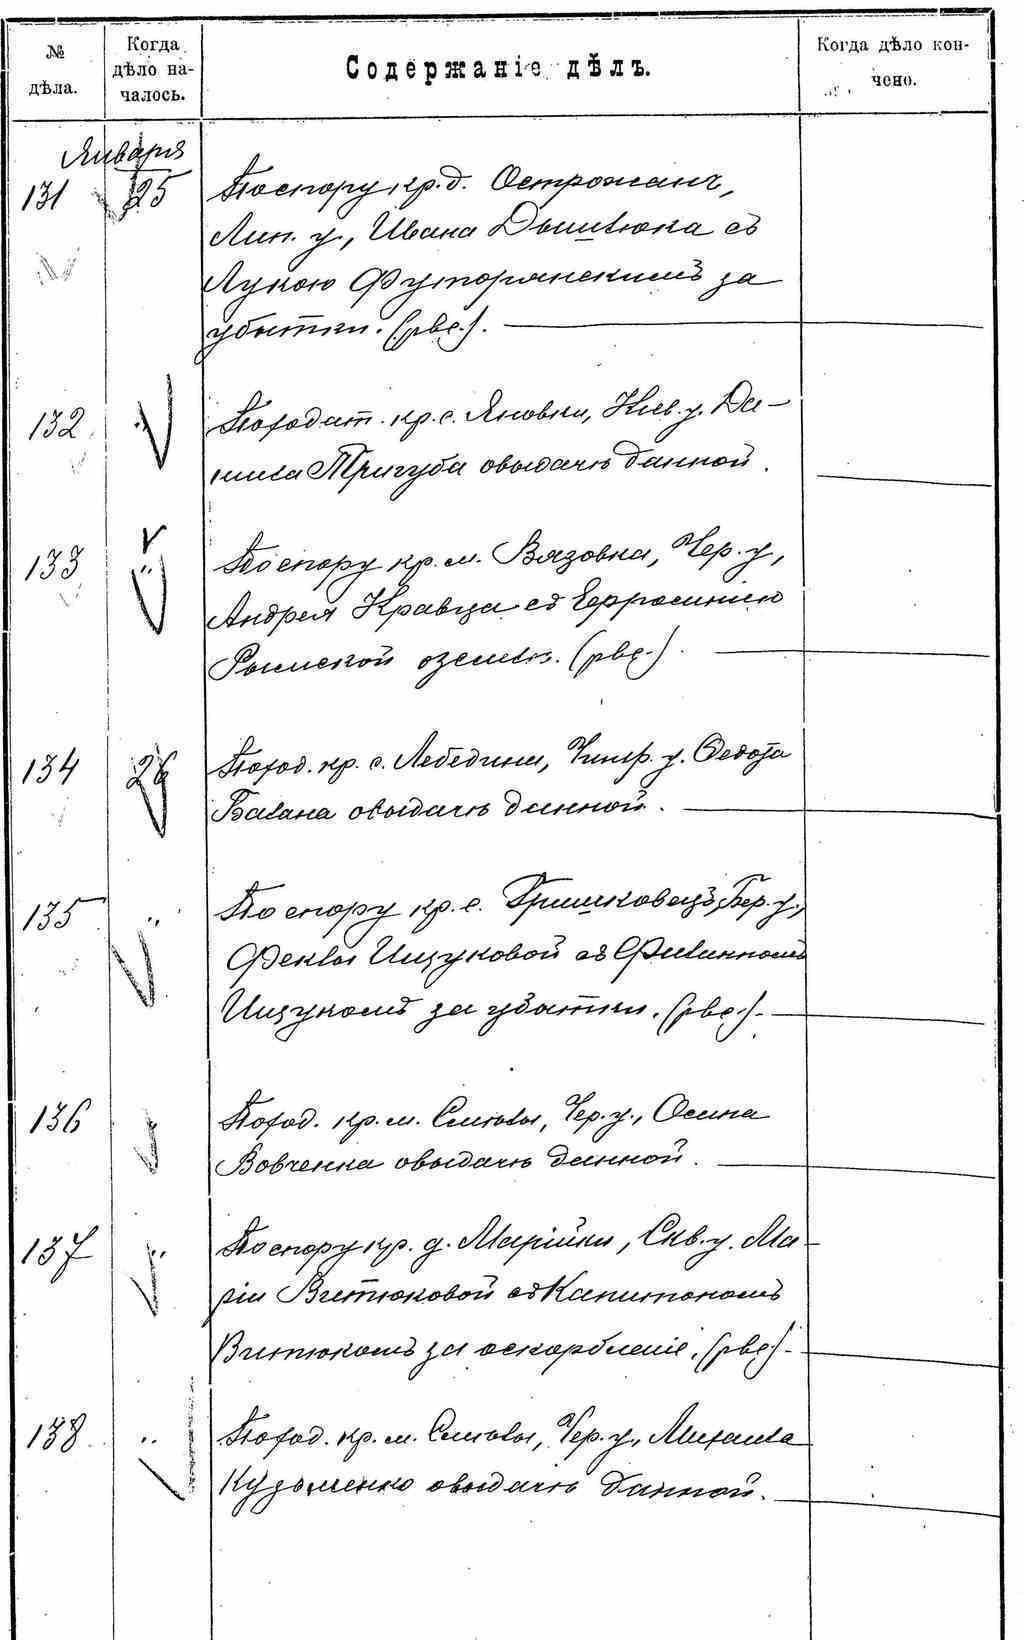 № дѣла.
Когда дѣло началось.
Содержаніе дѣлъ.
Когда дѣло кончено.
Января
131 25 По спору кр. д. Острожанъ,
Лип. у., Ивана Дышлюка съ
Лукою Футорянскимъ за
убытки. (рвс.).
132 " По ходат. кр. с. Яновки, Кіев. у. Да-
нила Тригуба о выдачѣ данной.
133 " По спору кр. м. Вязовка, Чер. у.,
Андрея Кравца съ Ефросиніею
Рымской о землѣ. (рвс.).
134 26 По ход. кр. с. Лебедини, Чигир. у. Федота
Балана о выдачѣ данной.
135 " По спору кр. с. Гришковецъ, Бер. у.,
Феклы Ищуковой съ Филимономъ
Ищукомъ за убытки. (рвс.).
136 По ход. кр. м. Смѣлы, Чер. у., Осипа
Вовченка о выдачѣ данной.
137 " По спору кр. д. Марійки, Скв. у. Ма-
ріи Витюковой съ Капитономъ
Витюкомъ за оскорбленіе. (рвс).
138 " По ход. кр. м. Смѣлы, Чер. у., Михаила
Кузьменко о выдачѣ данной.